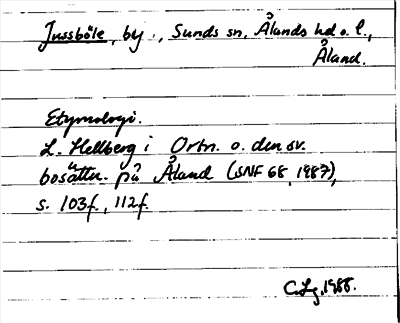 Jussböle, by., Sunds sn, Ålands hd o. l.,
Åland.
Etymologi.
L. Hellberg i Ortn. o. den sv.
bosättn. på Åland (SNF 68, 1987),
s. 103f., 112f.
C. Lg, 1988.